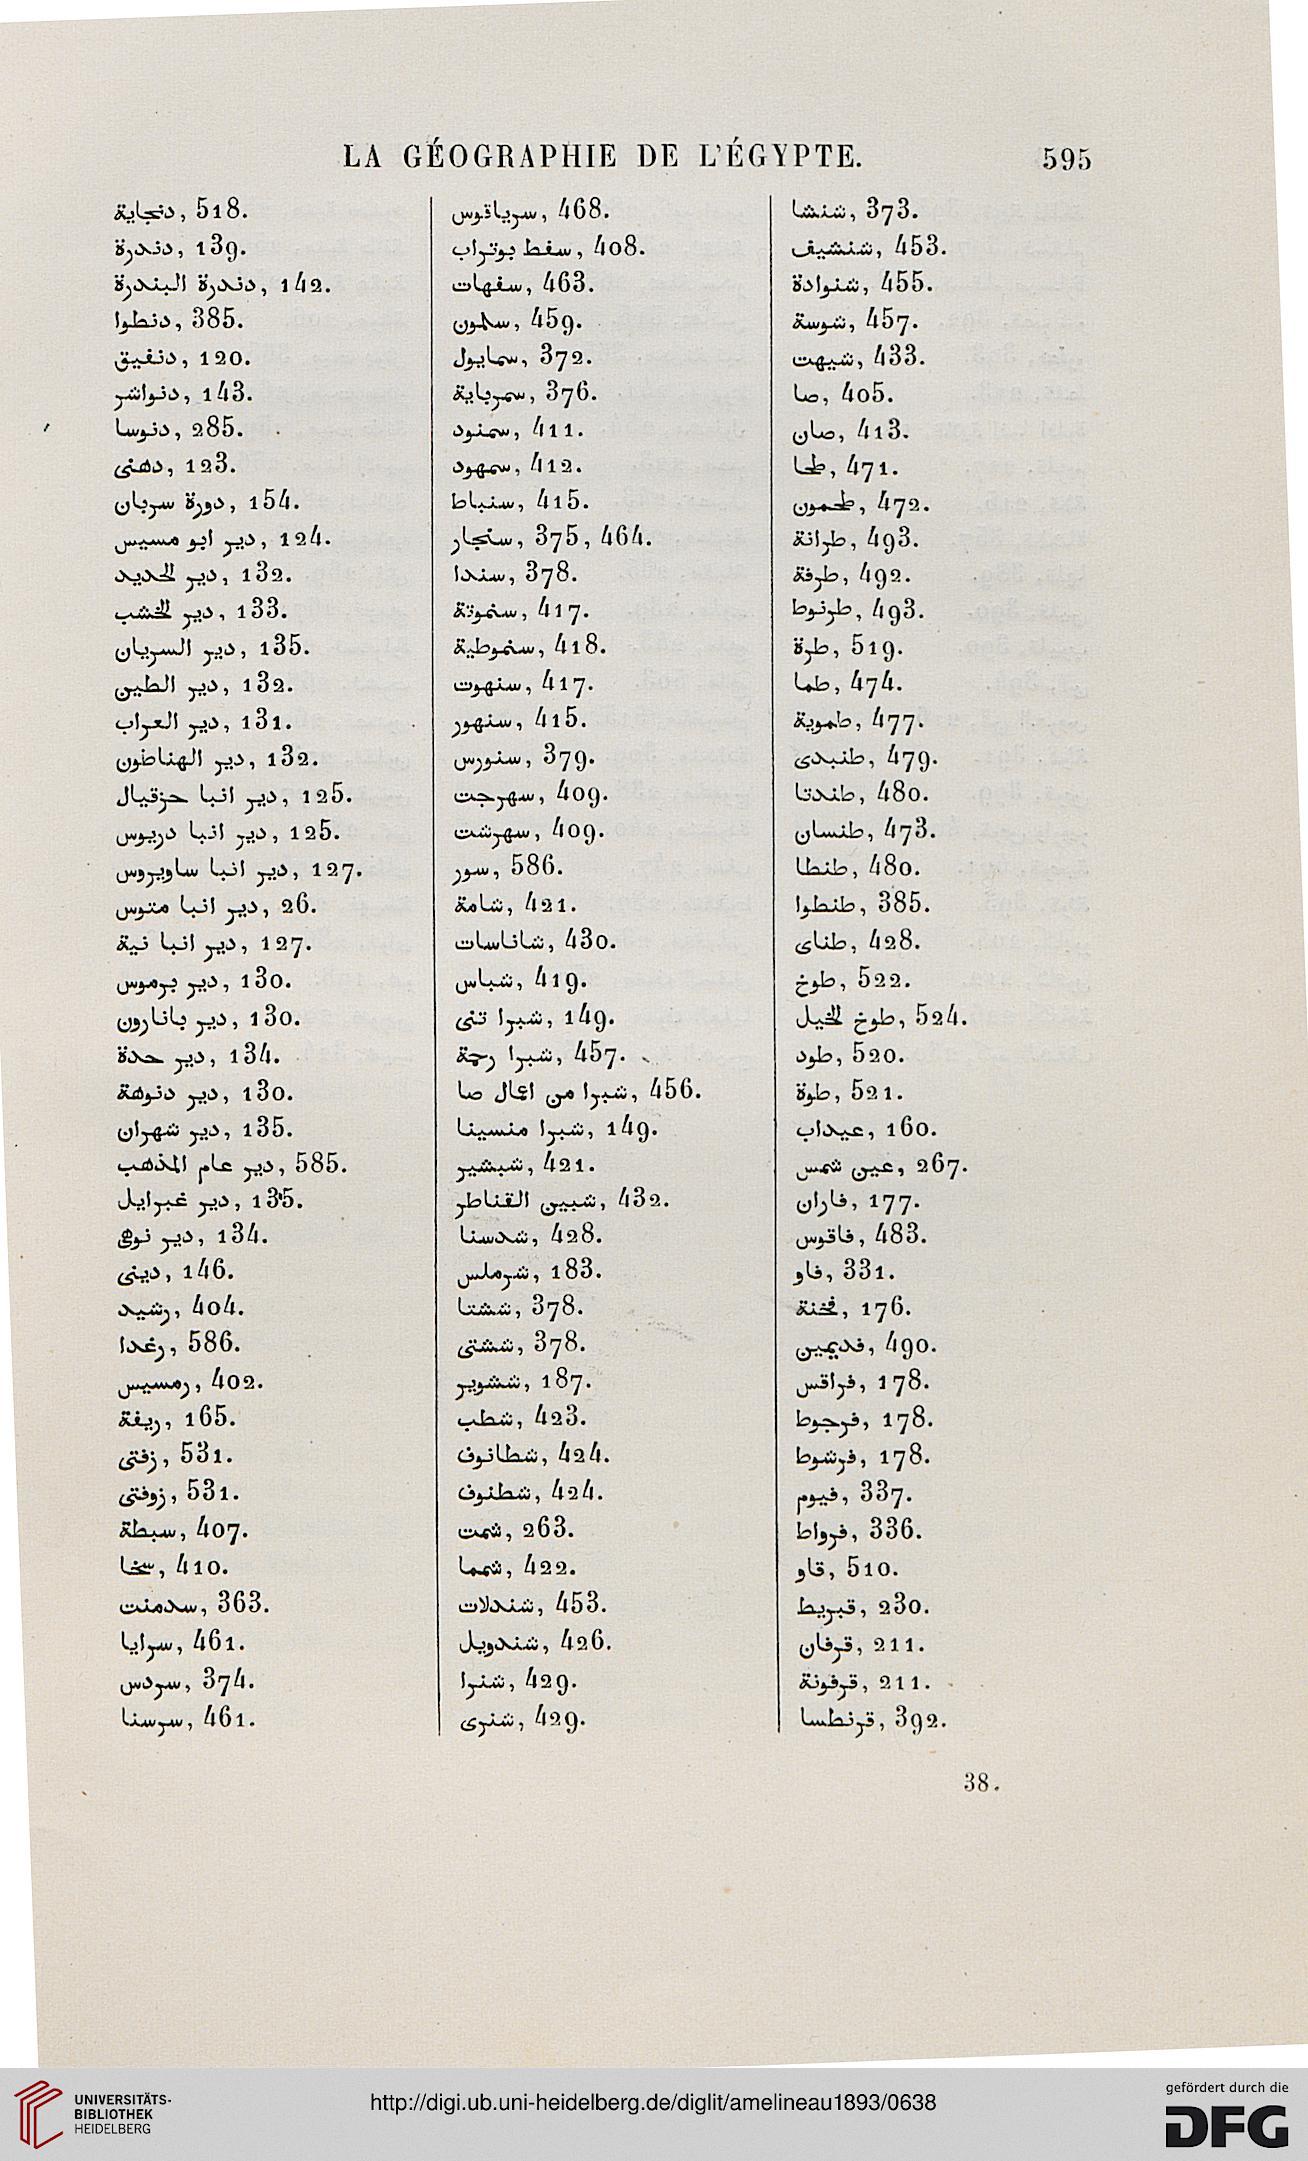 LA GÉOGRAPHIE DE L'ÉGYPTE. 595
دنجاية, 518.
دندرة, 139.
دندرة البندرة, 142.
دنطوا, 385.
دنفيق, 120.
دنواشر, 143.
دنوسا, 285.
دهنى, 123.
دورة سربان, 154.
دير ابو مسيس, 124.
دير الحديد, 132.
دير الخشب, 133.
دير السريان, 135.
دير الطين, 132.
دير العراب, 131.
دير الهناطون, 132.
دير انبا حزقيال, 125.
دير انبا دريوس, 125.
دير انبا ساويروس, 127.
دير انبا متوس, 26.
دير انبا نية, 127.
دير برموس, 130.
دير بانارون, 130.
دير حدة, 134.
دير دنوهة, 130.
دير شهران, 135.
دير عام المذهب, 585.
دير غبرايل, 135.
دير نوهى, 134.
دينى, 146.
رشيد, 404.
رغدا, 586.
رمسيس, 402.
ريفة, 165.
زفتى, 531.
زوفتى, 531.
سبطة, 407.
سخا, 410.
سدمنت, 363.
سرايا, 461.
سردس, 374.
سرسنا, 461.
سرياقوس, 468.
سفط بوتراب, 408.
سفهات, 463.
سلمون, 459.
سمايول, 372.
سمرباية, 376.
سمنود, 411.
سمهود, 412.
سنباط, 415.
سنجار, 375, 464.
سندا, 378.
سنموتة, 417.
سنموطية, 418.
سنهوت, 417.
سنهور, 415.
سنورس, 379.
سهرجت, 409.
سهرشت, 409.
سور, 586.
شامة, 421.
شاناسات, 430.
شباس, 419.
شبرا تنى, 149.
شبرا رحمة, 457.
شبرا من اعمال صا, 456.
شبرا منسينا, 149.
شبشير, 421.
شبين القناطر, 432.
شدسنا, 428.
شرملس, 183.
ششتا, 378.
ششتى, 378.
ششوير, 187.
شطب, 423.
شطانوف, 424.
شطنوف, 424.
شمت, 263.
شمما, 422.
شندلات, 453.
شندويل, 426.
شنرا, 429.
شنرى, 429.
شنشا, 373.
شنشيف, 453.
شنوادة, 455.
شوسة, 457.
شيهت, 433.
صا, 405.
صان, 413.
طحا, 471.
طحمون, 472.
طرانة, 493.
طرفة, 492.
طرنوط, 493.
طرة, 519.
طما, 474.
طموية, 477.
طنبدى, 479.
طندتا, 480.
طنسان, 473.
طنطا, 480.
طنطوا, 385.
طناى, 428.
طوخ, 522.
طوخ الخيل, 524.
طود, 520.
طوة, 521.
عيداب, 160.
عين شمس, 267.
فاران, 177.
فاقوس, 483.
فاو, 331.
فخنة, 176.
فديمين, 490.
فراقس, 178.
فرجوط, 178.
فرشوط, 178.
فيوم, 337.
فرواط, 336.
قاو, 510.
قبريط, 230.
قرفان, 211.
قرفونة, 211.
قرنطسا, 392.
38.
UNIVERSITÄTS-
BIBLIOTHEK
HEIDELBERG
http://digi.ub.uni-heidelberg.de/diglit/amelineau1893/0638
gefördert durch die
DFG